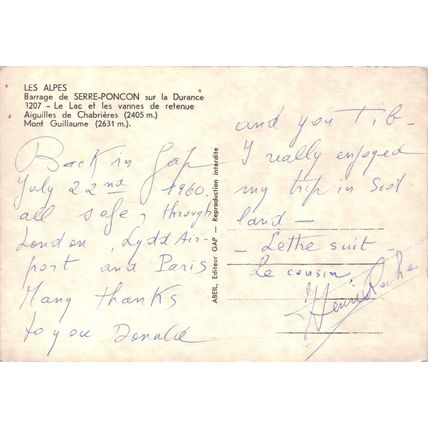 LES ALPES
Barrage de SERRE-PONCON sur la Durance
3207 - Le Lac et les vannes de retenue
Aiguilles de Chabrières (2405 m.)
Mont Guillaume (2631 m.).
Back in Gap
July 22nd 1960.
all safe, through
London, Lydd Air-
port and Paris
Many thanks
to you Donald
ABEIL, Editeur GAP — Reproduction interdite
and you Tib -
I really enjoyed
my trip in Scot
land -
- Lettre suit -
Le cousin
Henri Roche